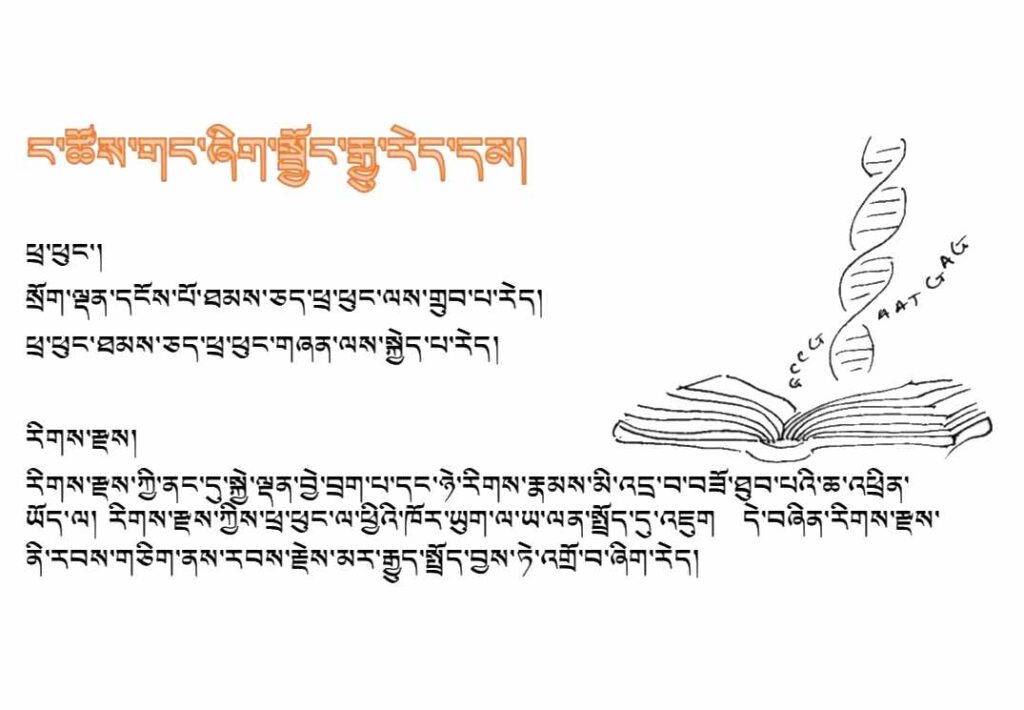 ང་ཚོས་གང་ཞིག་སྦྱོང་རྒྱུ་རེད་དམ།
ཕྲ་ཕུང་།
སྲོག་ལྡན་དངོས་པོ་ཐམས་ཅད་ཕྲ་ཕུང་ལས་གྲུབ་པ་རེད།
ཕྲ་ཕུང་ཐམས་ཅད་ཕྲ་ཕུང་གཞན་ལས་སྐྱེད་པ་རེད།
རིགས་རྫས།
རིགས་རྫས་ཀྱི་ནང་དུ་སྐྱེ་ལྡན་བྱེ་བྲག་པ་དང་ཉེ་རིགས་རྣམས་མི་འདྲ་བ་བཟོ་ཐུབ་པའི་ཆ་འཕྲིན་
ཡོད་ལ། རིགས་རྫས་ཀྱིས་ཕྲ་ཕུང་ལ་ཕྱིའི་ཁོར་ཡུག་ལ་ཡ་ལན་སྤྲོད་དུ་འཇུག དེ་བཞིན་རིགས་རྫས་
ནི་རབས་གཅིག་ནས་རབས་རྗེས་མར་རྒྱུད་སྤྲོད་བྱས་ཏེ་འགྲོ་བ་ཞིག་རེད།
AATGAG
GCCG